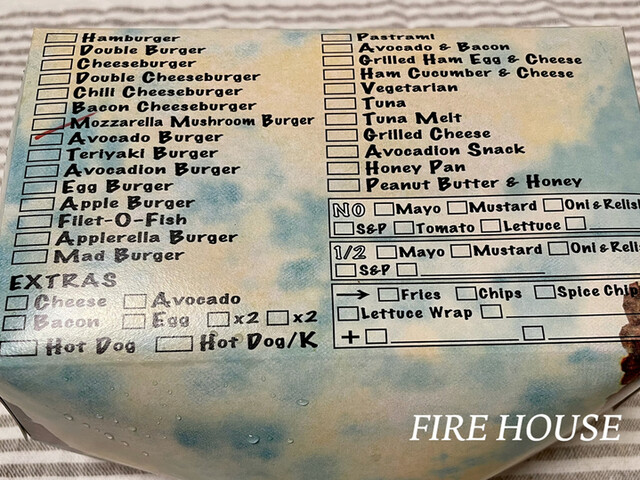 Hamburger
Double Burger
Cheeseburger
Double Cheeseburger
Chili Cheeseburger
Bacon Cheeseburger
Mozzarella Mushroom Burger
Avocado Burger
Teriyaki Burger
Avocadion Burger
Egg Burger
Apple Burger
Filet-O-Fish
Applerella Burger
Mad Burger
EXTRAS
Cheese Avocado
Bacon Egg x2 x2
Hot Dog Hot Dog/K
Pastrami
Avocado & Bacon
Grilled Ham Egg & Cheese
Ham Cucumber & Cheese
Vegetarian
Tuna
Tuna Melt
Grilled Cheese
Avocadion Snack
Honey Pan
Peanut Butter & Honey
NO Mayo Mustard Oni & Relish
S&P Tomato Lettuce
1/2 Mayo Mustard Oni & Relish
S&P
→ Fries Chips Spice Chip
Lettuce Wrap
+
FIRE HOUSE